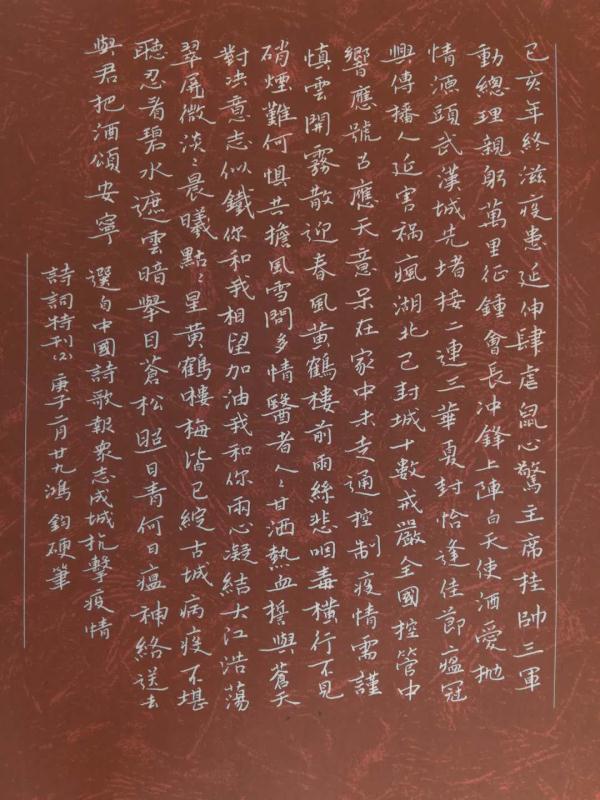 己亥年終滋疫患延伸肆虐鼠心驚主席挂帥三軍
動總理親躬萬里征鍾會長冲鋒上陣白天使洒愛抛
情濃頭武漢城先堵接二連三華夏封恰逢佳節瘟冠
興傳播人近害禍瘋湖北已封城十數戒嚴全國控管中
響應號召應天意呆在家中未走通控制疫情需謹
慎雲開霧散迎春風黄鶴樓前雨絲悲咽毒横行不見
硝煙難何惧共擔風雪問多情醫者人々甘洒熱血誓與蒼天
對决意志似鐵你和我相望加油我和你兩心凝結大江浩蕩
翠屏微淡々晨曦點々星黄鶴樓梅皆已綻古城病疫不堪
聽忍看碧水遮雲暗舉目蒼松照日青何日瘟神絡送去
與君把酒頌安寧
選自中國詩歌報衆志成城抗擊疫情
詩詞特刊(2)庚子二月廿九鴻鈞硬筆